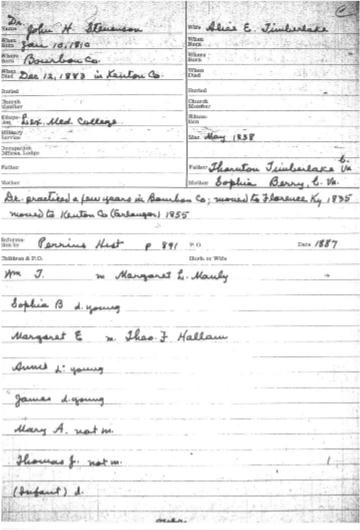 C
Dr.
Name John H. Stevenson Wife Alice E. Timberlake
When Born Jan 10, 1810 When Born
Where Born Bourbon Co. Where Born
When Died Dec 12, 1883 in Kenton Co. When Died
Buried Buried
Church Member Church Member
Education Lex. Med College Education
Military Service Mar. May 1838
Occupation Offices, Lodge
Father Father Thornton Timberlake C. Va
Mother Mother Sophia Berry, C. Va.
Dr. practiced a few years in Bourbon Co; moved to Florence Ky 1835
moved to Kenton Co (Erlanger) 1855
Information by Perrins Hist p 891 P.O. Date 1887
Children & P.O. Husb. or Wife
Wm T. m Margaret L. Manly
Sophia B d. young
Margaret E m. Theo. F Hallam
Annie L: young
James d. young
Mary A. not m.
Thomas J. not m.
(Infant) d.